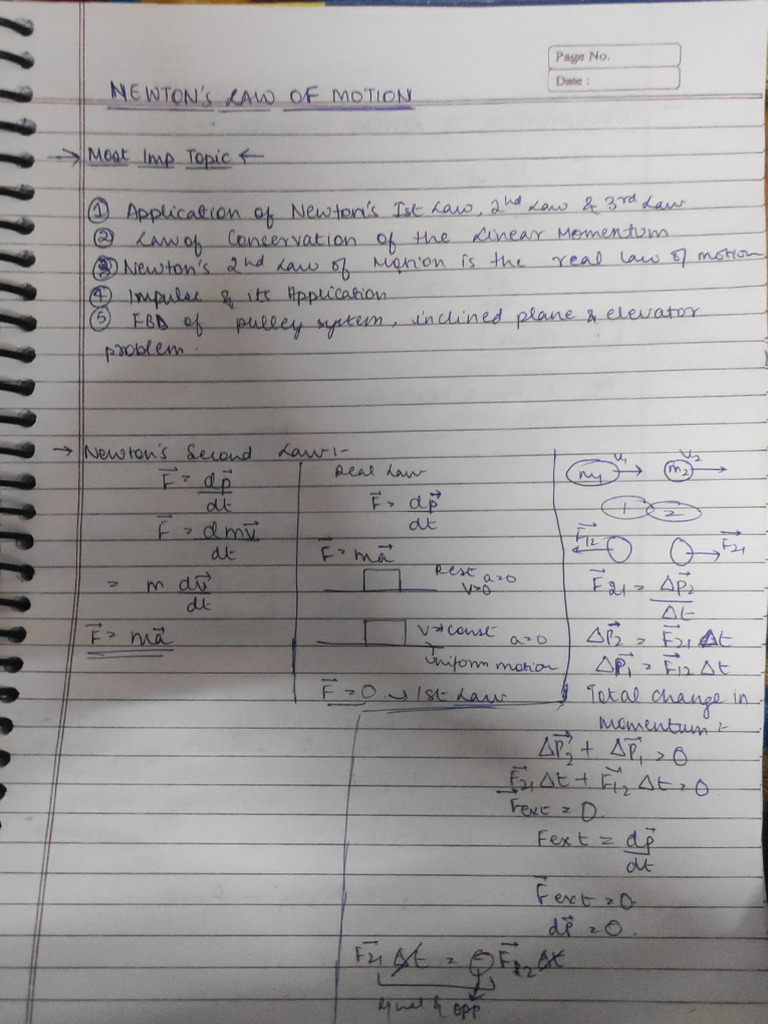 Page No.
Date :
NEWTON'S LAW OF MOTION
→ Most Imp Topic ←
① Application of Newton's Ist Law, 2nd Law & 3rd Law
② Law of Concervation of the Linear Momentum
③ Newton's 2nd Law of Motion is the real law of motion
④ Impulse & its Application
⑤ FBD of pulley system, inclined plane & elevator
problem.
→ Newton's Second Law :-
F⃗ = dp⃗/dt
F⃗ = dmv⃗/dt
= m dv⃗/dt
F⃗ = ma⃗
Real Law
F⃗ = dp⃗/dt
F⃗ = ma⃗
Rest a=0
v=0
v→const a=0
Uniform motion
F⃗ = 0 → Ist Law
m1 u1 m2 v2
1 2
F⃗12 F⃗21
F⃗21 = Δp⃗2/Δt
Δp⃗2 = F⃗21 Δt
Δp⃗1 = F⃗12 Δt
Total change in
momentum :-
ΔP⃗2 + ΔP⃗1 = 0
F⃗21 Δt + F⃗12 Δt = 0
F⃗ext = 0
Fext = dp⃗/dt
F⃗ext = 0
dp⃗ = 0.
F⃗21 Δt = - F⃗12 Δt
equal & opp